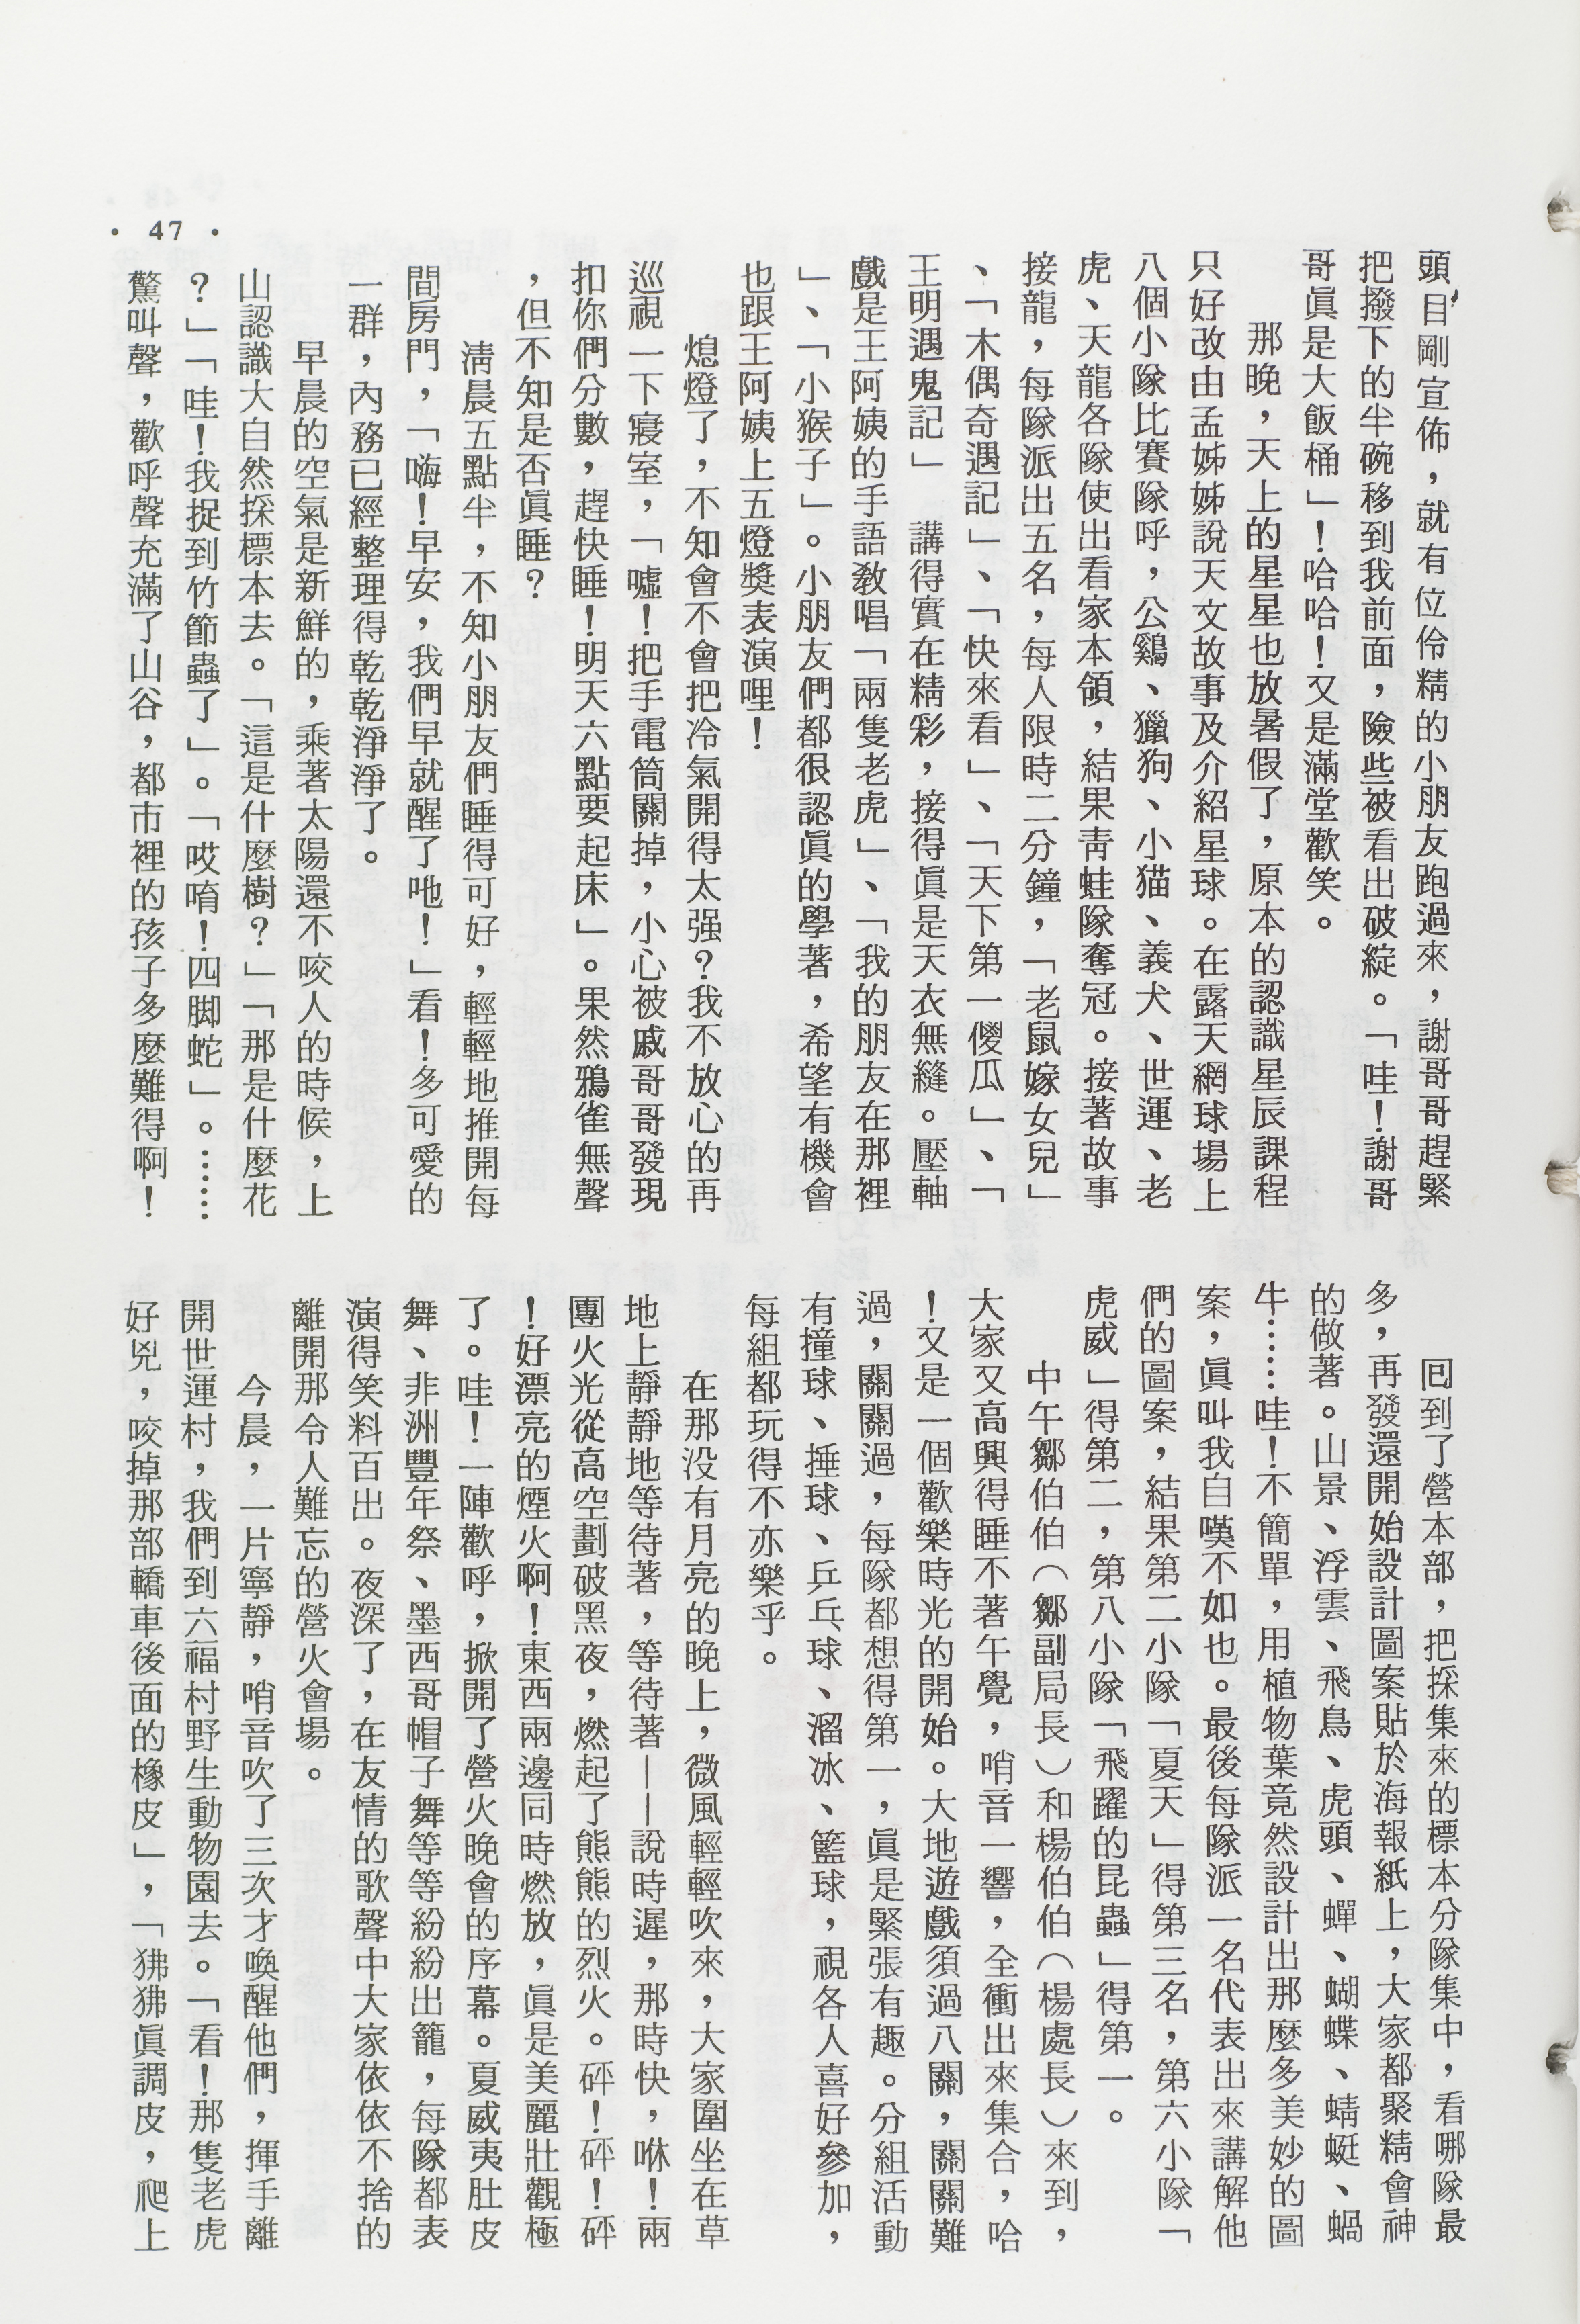 頭目剛宣佈，就有位伶精的小朋友跑過來，謝哥哥趕緊
把撥下的半碗移到我前面，險些被看出破綻。「哇！謝哥
哥眞是大飯桶」！哈哈！又是滿堂歡笑。
那晚，天上的星星也放暑假了，原本的認識星辰課程
只好改由孟姊姊說天文故事及介紹星球。在露天網球場上
八個小隊比賽隊呼，公鷄、獵狗、小猫、義犬、世運、老
虎、天龍各隊使出看家本領，結果靑蛙隊奪冠。接著故事
接龍，每隊派出五名，每人限時二分鐘，「老鼠嫁女兒」
、「木偶奇遇記」、「快來看」、「天下第一傻瓜」、「
王明遇鬼記」　講得實在精彩，接得眞是天衣無縫。壓軸
戲是王阿姨的手語敎唱「兩隻老虎」、「我的朋友在那裡
」、「小猴子」。小朋友們都很認眞的學著，希望有機會
也跟王阿姨上五燈獎表演哩！
熄燈了，不知會不會把冷氣開得太强？我不放心的再
巡視一下寢室，「噓！把手電筒關掉，小心被戚哥哥發現
扣你們分數，趕快睡！明天六點要起床」。果然鴉雀無聲
，但不知是否眞睡？
淸晨五點半，不知小朋友們睡得可好，輕輕地推開每
間房門，「嗨！早安，我們早就醒了吔！」看！多可愛的
一群，內務已經整理得乾乾淨淨了。
早晨的空氣是新鮮的，乘著太陽還不咬人的時候，上
山認識大自然採標本去。「這是什麼樹？」「那是什麼花
？」「哇！我捉到竹節蟲了」。「哎唷！四脚蛇」。……
驚叫聲，歡呼聲充滿了山谷，都市裡的孩子多麼難得啊！
回到了營本部，把採集來的標本分隊集中，看哪隊最
多，再發還開始設計圖案貼於海報紙上，大家都聚精會神
的做著。山景、浮雲、飛鳥、虎頭、蟬、蝴蝶、蜻蜓、蝸
牛……哇！不簡單，用植物葉竟然設計出那麼多美妙的圖
案，眞叫我自嘆不如也。最後每隊派一名代表出來講解他
們的圖案，結果第二小隊「夏天」得第三名，第六小隊「
虎威」得第二，第八小隊「飛躍的昆蟲」得第一。
中午鄒伯伯（鄒副局長）和楊伯伯（楊處長）來到，
大家又高興得睡不著午覺，哨音一響，全衝出來集合，哈
！又是一個歡樂時光的開始。大地遊戲須過八關，關關難
過，關關過，每隊都想得第一，眞是緊張有趣。分組活動
有撞球、捶球、乒乓球、溜冰、籃球，視各人喜好參加，
每組都玩得不亦樂乎。
在那没有月亮的晚上，微風輕輕吹來，大家圍坐在草
地上靜靜地等待著，等待著——說時遲，那時快，咻！兩
團火光從高空劃破黑夜，燃起了熊熊的烈火。砰！砰！砰
！好漂亮的煙火啊！東西兩邊同時燃放，眞是美麗壯觀極
了。哇！一陣歡呼，掀開了營火晚會的序幕。夏威夷肚皮
舞、非洲豐年祭、墨西哥帽子舞等等紛紛出籠，每隊都表
演得笑料百出。夜深了，在友情的歌聲中大家依依不捨的
離開那令人難忘的營火會場。
今晨，一片寧靜，哨音吹了三次才喚醒他們，揮手離
開世運村，我們到六福村野生動物園去。「看！那隻老虎
好兇，咬掉那部轎車後面的橡皮」，「狒狒眞調皮，爬上
• 47 •